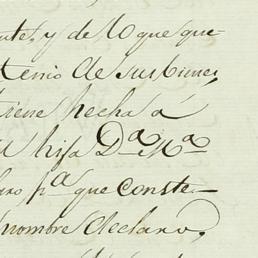 y de lo que que
de sus bienes,
tiene hecha á
hija D.ª M.ª
p.ª que conste
nombre declaro,